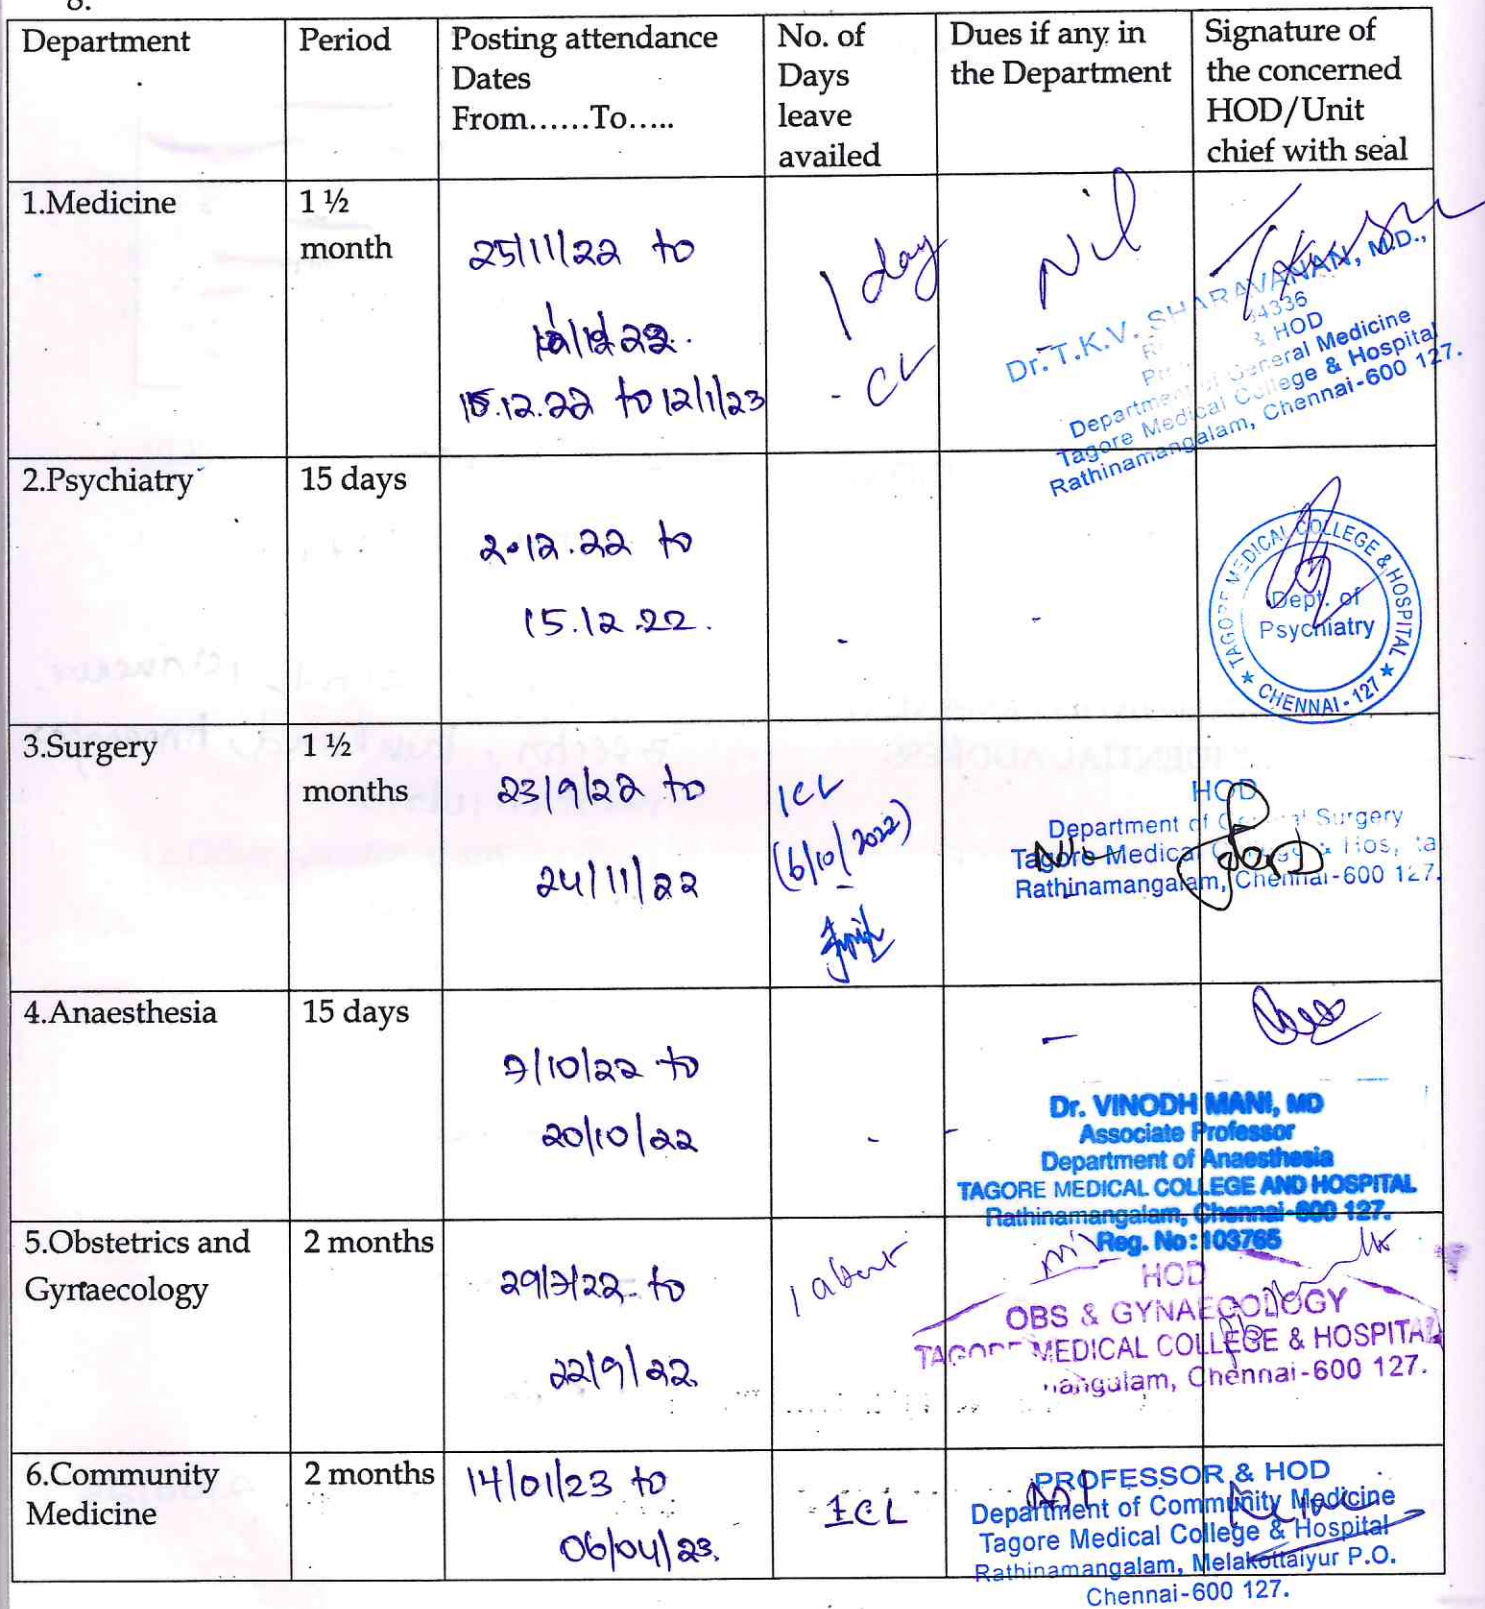 8.
Department
Period
Posting attendance
Dates
From......To.....
No. of
Days
leave
availed
Dues if any in
the Department
Signature of
the concerned
HOD/Unit
chief with seal
1.Medicine
1 ½
month
25/11/22 to
15.12.22 to 12/1/23
1 day
- CL
Nil
Dr. T.K.V. SHARAVANAN, M.D.,
& HOD
Department of General Medicine
Tagore Medical College & Hospital
Rathinamangalam, Chennai-600 127.
2.Psychiatry
15 days
2.12.22 to
15.12.22.
-
-
TAGORE MEDICAL COLLEGE & HOSPITAL
Dept. of
Psychiatry
★ CHENNAI - 127 ★
3.Surgery
1 ½
months
23/9/22 to
24/11/22
1CL
(6/10/2022)
Nil
HOD
Department of General Surgery
Tagore Medical College & Hospital
Rathinamangalam, Chennai-600 127.
4.Anaesthesia
15 days
7/10/22 to
20/10/22
-
-
Dr. VINODH MANI, MD
Associate Professor
Department of Anaesthesia
TAGORE MEDICAL COLLEGE AND HOSPITAL
Rathinamangalam, Chennai-600 127.
Reg. No: 103765
5.Obstetrics and
Gynaecology
2 months
29/7/22 to
22/9/22
1
Nil
HOD
OBS & GYNAECOLOGY
TAGORE MEDICAL COLLEGE & HOSPITAL
Chennai-600 127.
6.Community
Medicine
2 months
14/01/23 to
06/04/23.
1CL
Nil
PROFESSOR & HOD
Department of Community Medicine
Tagore Medical College & Hospital
Rathinamangalam, Melakottaiyur P.O.
Chennai-600 127.